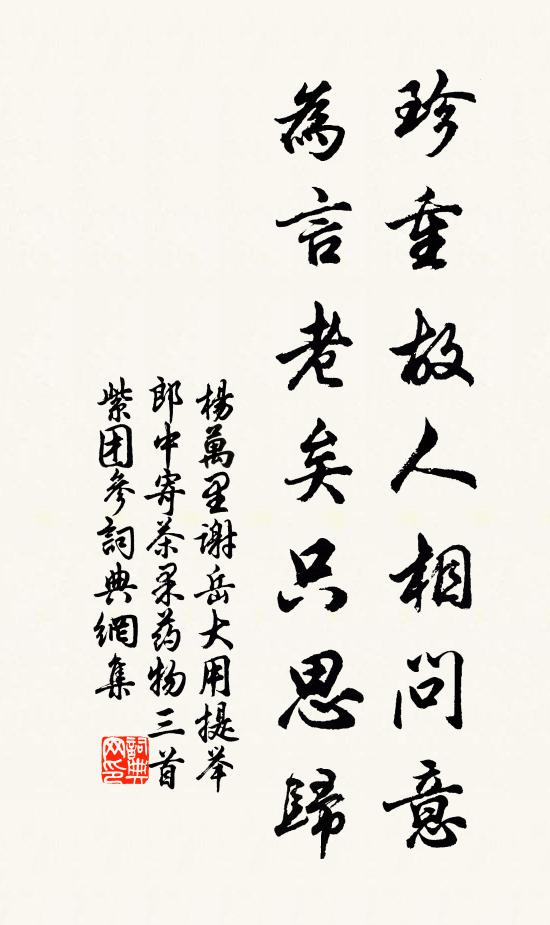 珍重故人相問意
為言老矣只思歸
楊萬里謝岳大用提举
郎中寄茶果药物三首
紫团參詞典網集
詞典网印